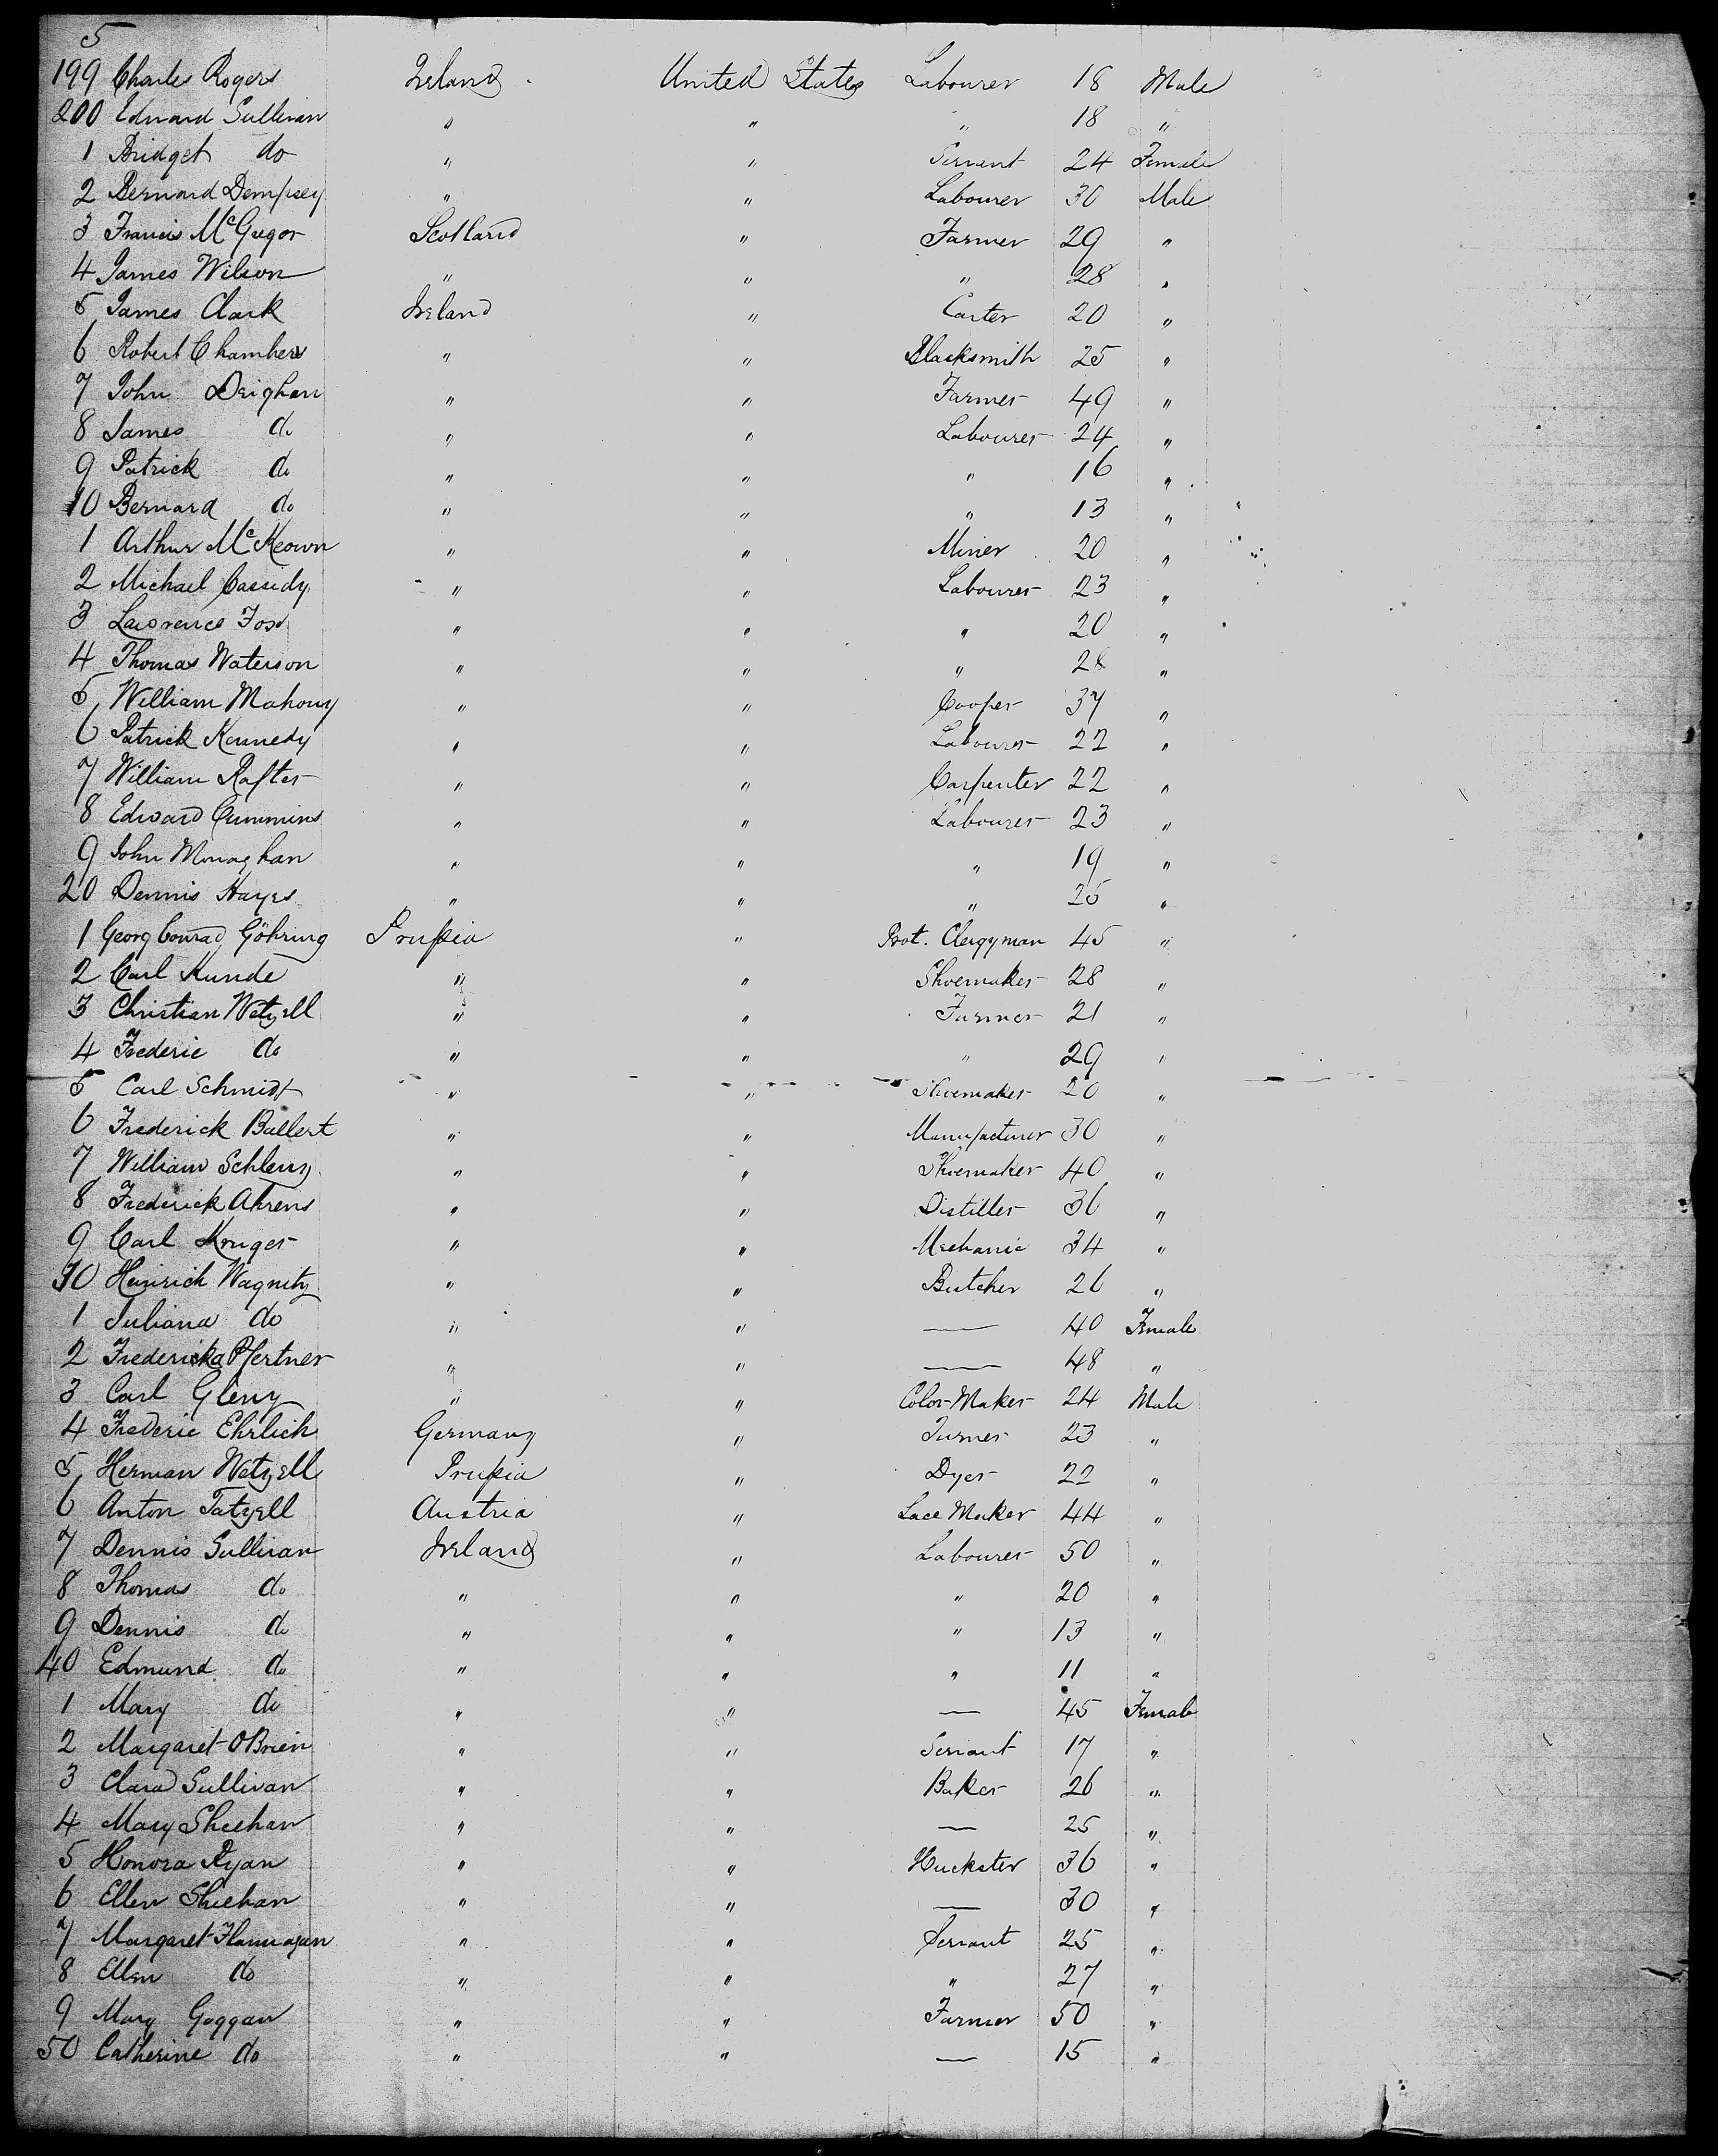 5
199 Charles Rogers Ireland United States Labourer 18 Male
200 Edward Sullivan " " " 18 "
1 Bridget do " " Servant 24 Female
2 Bernard Dempsey " " Labourer 30 Male
3 Francis McGregor Scotland " Farmer 29 "
4 James Wilson " " " 28 "
5 James Clark Ireland " Carter 20 "
6 Robert Chambers " " Blacksmith 25 "
7 John Deighan " " Farmer 49 "
8 James do " " Labourer 24 "
9 Patrick do " " " 16 "
10 Bernard do " " " 13 "
1 Arthur McKeown " " Miner 20 "
2 Michael Cassidy " " Labourer 23 "
3 Lawrence Fox " " " 20 "
4 Thomas Waterson " " " 28 "
5 William Mahony " " Cooper 37 "
6 Patrick Kennedy " " Labourer 22 "
7 William Rafter " " Carpenter 22 "
8 Edward Cummins " " Labourer 23 "
9 John Monaghan " " " 19 "
20 Dennis Hayes " " " 25 "
1 Georg Conrad Göhring Prussia " Prot. Clergyman 45 "
2 Carl Kunde " " Shoemaker 28 "
3 Christian Wetzell " " Farmer 21 "
4 Frederic do " " " 29 "
5 Carl Schmidt " " Shoemaker 20 "
6 Frederick Ballert " " Manufacturer 30 "
7 William Schlenz " " Shoemaker 40 "
8 Frederick Ahrens " " Distiller 36 "
9 Carl Kruger " " Mechanic 34 "
30 Heinrich Wagnitz " " Butcher 26 "
1 Juliana do " " — 40 Female
2 Fredericka Pfertner " " — 48 "
3 Carl Glenz " " Color-Maker 24 Male
4 Frederic Ehrlich Germany " Turner 23 "
5 Herman Wetzell Prussia " Dyer 22 "
6 Anton Tatzell Austria " Lace Maker 44 "
7 Dennis Sullivan Ireland " Labourer 50 "
8 Thomas do " " " 20 "
9 Dennis do " " " 13 "
40 Edmund do " " " 11 "
1 Mary do " " — 45 Female
2 Margaret OBrien " " Servant 17 "
3 Clara Sullivan " " Baker 26 "
4 Mary Sheehan " " — 25 "
5 Honora Ryan " " Huckster 36 "
6 Ellen Sheehan " " — 30 "
7 Margaret Flannagan " " Servant 25 "
8 Ellen do " " " 27 "
9 Mary Goggan " " Farmer 50 "
50 Catherine do " " — 15 "